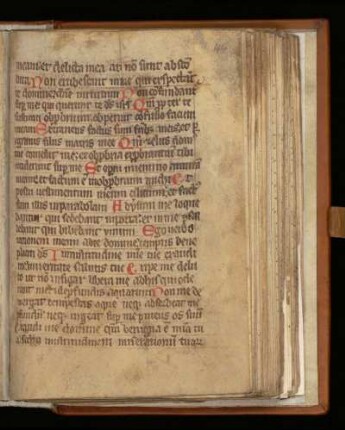 meam et delicta mea a te nō sunt absco
dita Non erubescant in me qui expectāt
te domine domine virtutum Non confundant᷑
sup me qui querunt te ds isrl Qm̄ pp̄ter te
sustinui obprobrium operuit confusio faciem
meam Extraneus factus sum frīb; meis et p̄e
grinus filiis matris mee Qm̄ zelus dom᷑
me comedit et obprobria exprobrantiū tibi
ceciderunt sup me Et operui in ieiunio animā
meam et factum ē in obprobrium michi Et
posui vestimentum meum cilicium et factꝰ
sum illis in parabolam Adversum me loque
bantur qui sedebant in porta et in me psal
lebant qui bibebant vinum Ego vero
orationem meam ad te domine tempus bene
placiti ds In multitudine mie tue exaudi
me in veritate salutis tue Eripe me de lu
to ut nō infigar libera me ab hiis qui ode
runt me et de profundis aquarum Non me de
mergat tempestas aque neq; absorbeat me
profundū neq; urgeat sup me puteus os suū
Exaudi me domine qm̄ benigna ē mīa tua
secundū multitudinem miserationū tuar᷑